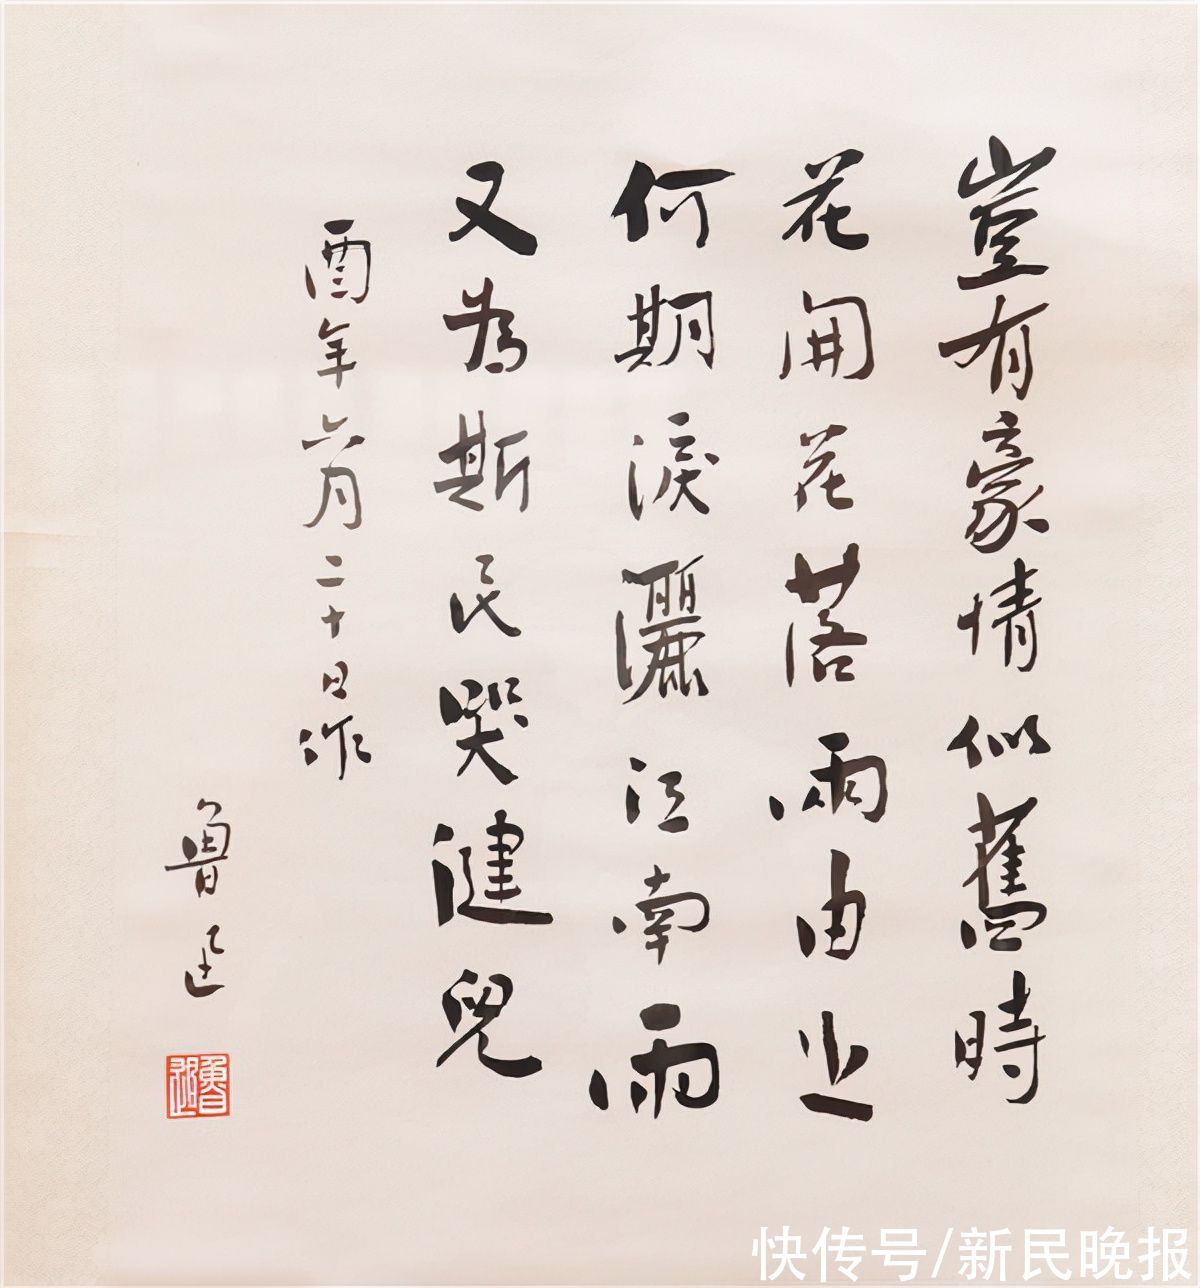 豈有豪情似舊時
花開花落兩由之
何期淚灑江南雨
又為斯民哭健兒
酉年六月二十日作
魯迅
魯迅
快传号/新民晚报